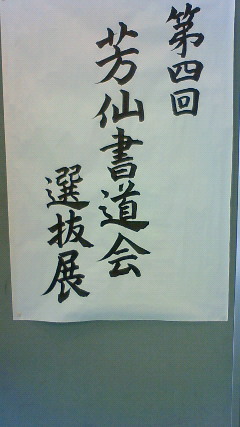 第四回
芳仙書道会
選抜展